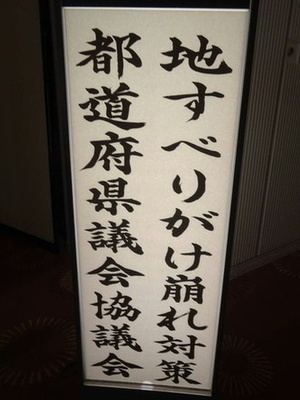 地すべりがけ崩れ対策
都道府県議会協議会